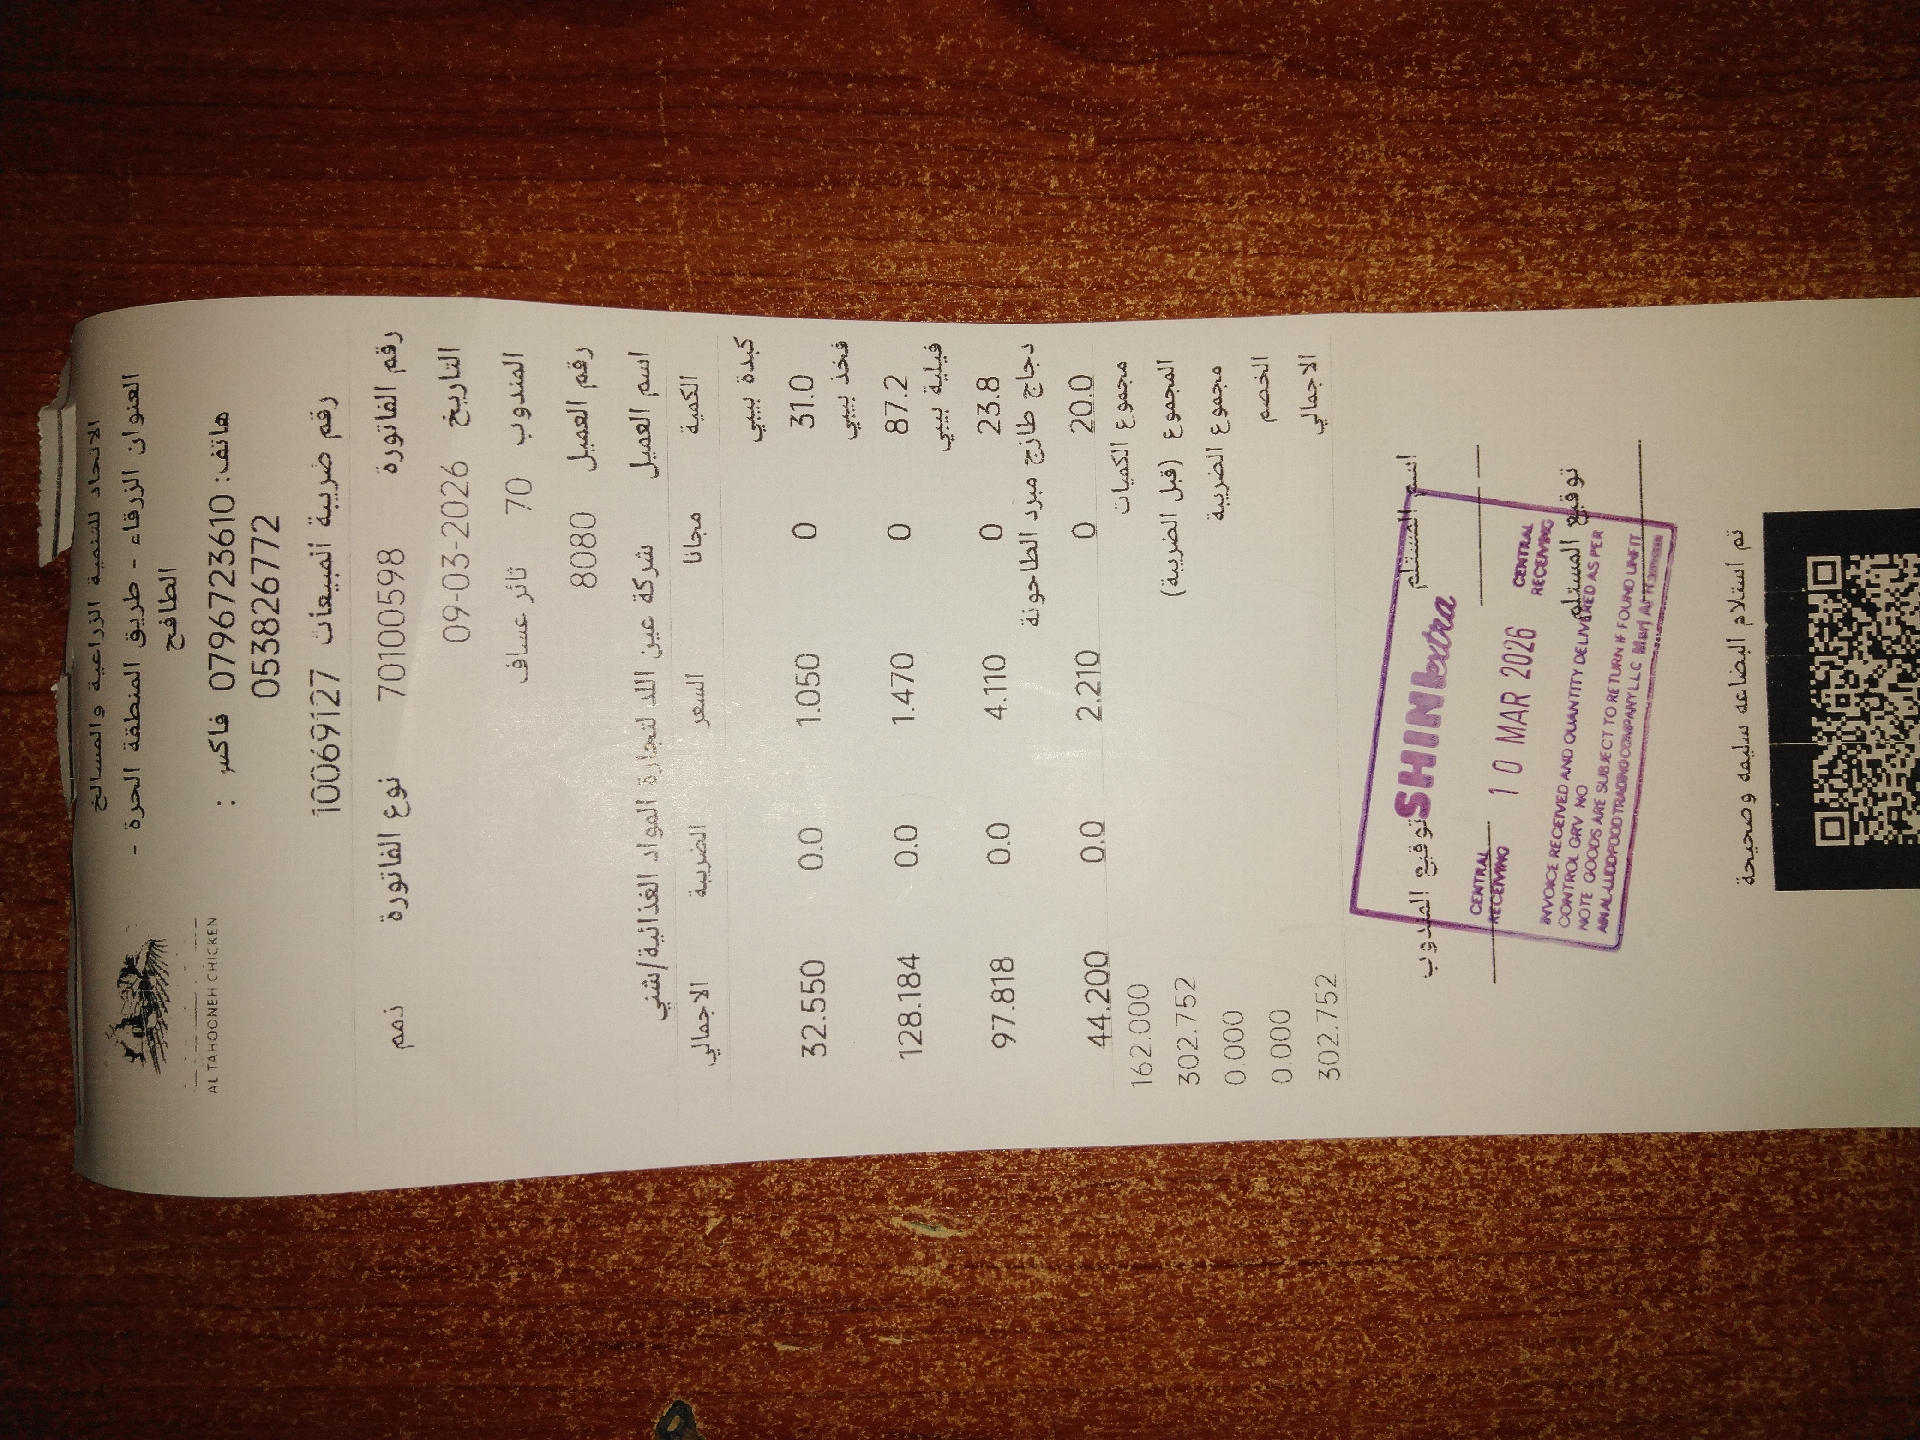 الاتحاد للتنمية الزراعية والمسالخ
العنوان الزرقاء - طريق المنطقة الحرة -
الطافح
هاتف: 0796723610 فاكس :
053826772
AL TAHOONEH CHICKEN
رقم ضريبة المبيعات 10069127
رقم الفاتورة 70100598 نوع الفاتورة ذمم
التاريخ 09-03-2026
المندوب 70 ثائر عساف
رقم العميل 8080
اسم العميل شركة عين اللد لتجارة المواد الغذائية/شني
الكمية مجانا السعر الضريبة الاجمالي
كبدة بيبي
31.0 0 1.050 0.0 32.550
فخذ بيبي
87.2 0 1.470 0.0 128.184
فيلية بيبي
23.8 0 4.110 0.0 97.818
دجاج طازج مبرد الطاحونة
20.0 0 2.210 0.0 44.200
مجموع الكميات 162.000
المجموع (قبل الضريبة) 302.752
مجموع الضريبة 0.000
الخصم 0.000
الاجمالي 302.752
اسم المستلم توقيع المندوب
SHINI extra
CENTRAL RECEIVING 10 MAR 2026 CENTRAL RECEIVING
توقيع المستلم
INVOICE RECEIVED AND QUANTITY DELIVERED AS PER
CONTROL GRV NO
NOTE GOODS ARE SUBJECT TO RETURN IF FOUND UNFIT
AIN AL-LUDD FOOD TRADING COMPANY L.L.C
تم استلام البضاعه سليمه وصحيحة